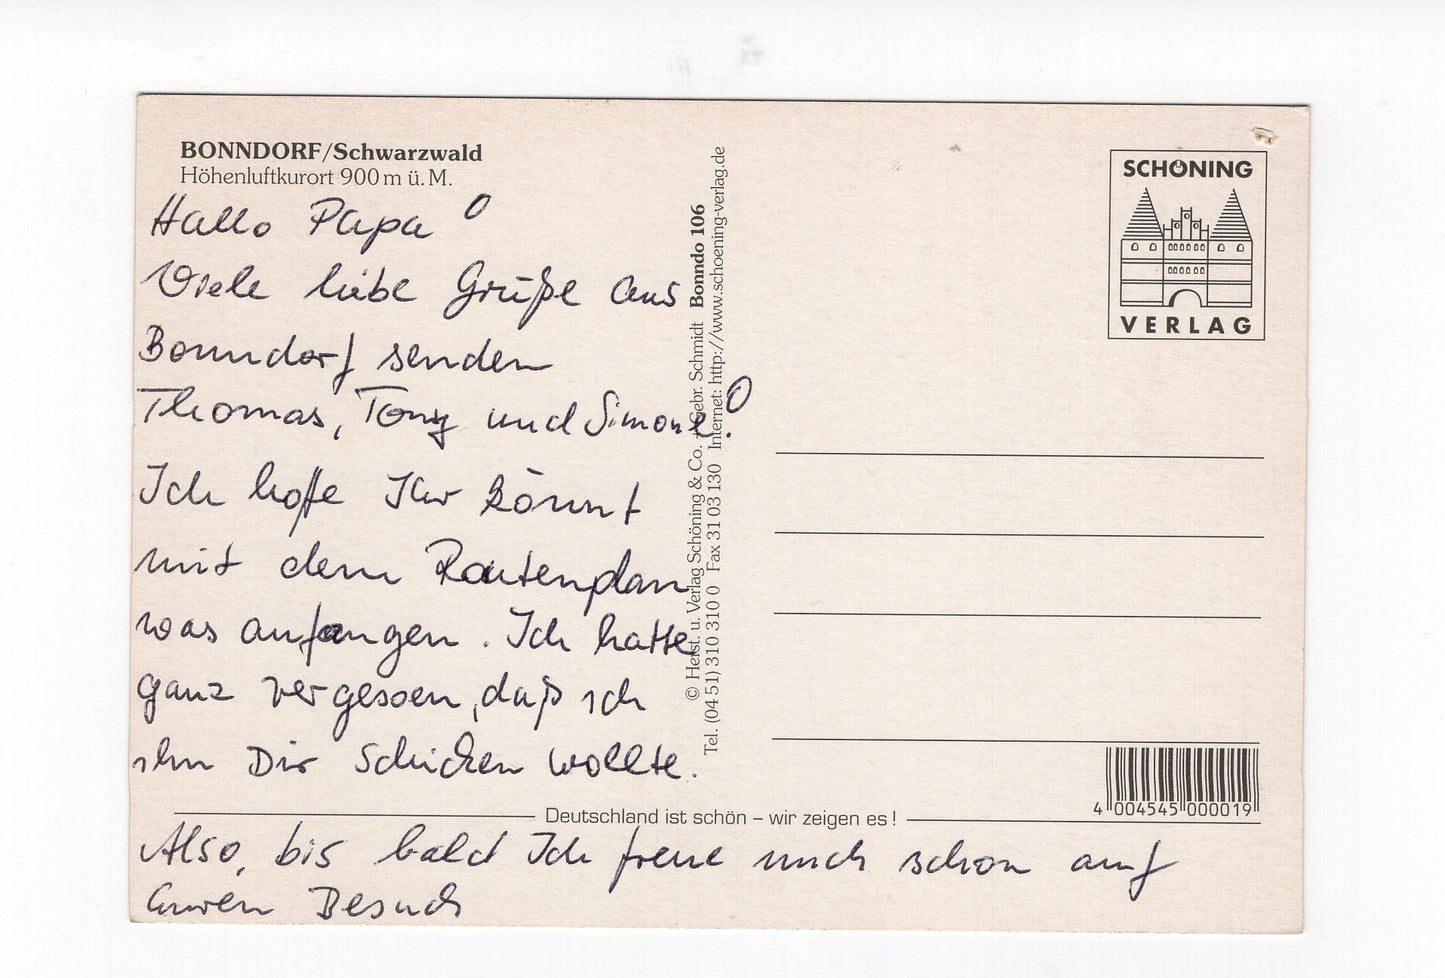 BONNDORF/Schwarzwald
Höhenluftkurort 900 m ü. M.
Hallo Papa!
Viele liebe Grüße aus
Bonndorf senden
Thomas, Tony und Simone!
Ich hoffe Ihr könnt
mit dem Routenplan
was anfangen. Ich hatte
ganz vergessen, daß ich
ihn Dir schicken wollte.
Also, bis bald Ich freue mich schon auf
Euren Besuch
© Herst. u. Verlag Schöning & Co. + Gebr. Schmidt Bonndo 106
Tel. (04 51) 310 310 0 Fax 31 03 130 Internet: http://www.schoening-verlag.de
SCHÖNING
VERLAG
4 004545 000019
Deutschland ist schön – wir zeigen es!